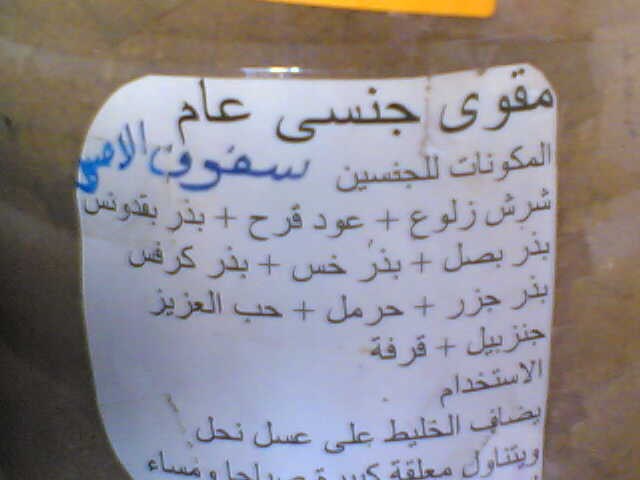 مقوى جنسى عام
المكونات للجنسين سفوف
شرش زلوع + عود قرح + بذر بقدونس
بذر بصل + بذر خس + بذر كرفس
بذر جزر + حرمل + حب العزيز
جنزبيل + قرفة
الاستخدام
يضاف الخليط على عسل نحل
ويتناول معلقة كبيرة صباحا ومساء